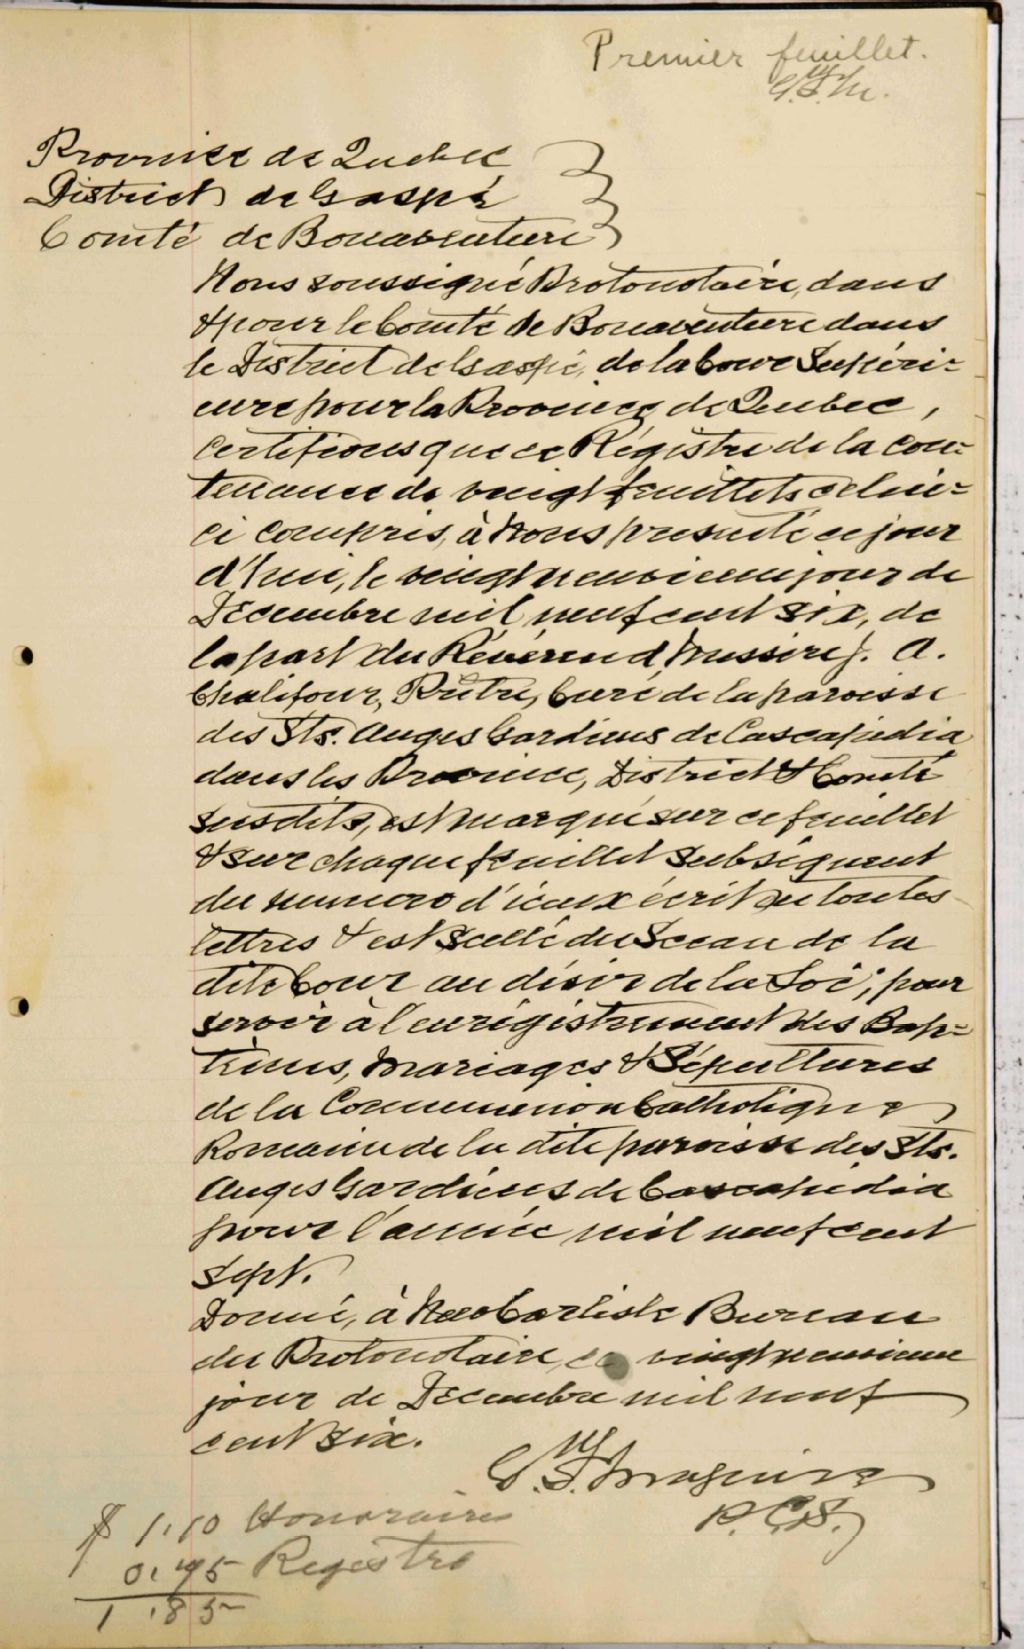 Premier feuillet.
Province de Quebec
District de Gaspé
Comté de Bonaventure
Nous soussigné Protonotaire, dans
& pour le Comté de Bonaventure dans
le District de Gaspé, de la Cour Supéri-
eure pour la Province de Quebec,
Certifions que ce Régistre de la con-
tenance de vingt feuillets celui-
ci compris, à Nous presenté ce jour
d'hui, le vingt neuvieme jour de
Décembre mil neuf cent six, de
la part du Révérend Messire J. A.
Chalifour, Prêtre, Curé de la paroisse
des Sts. Anges Gardiens de Cascapedia
dans les Province, District & Comté
susdits, est marqué sur ce feuillet
& sur chaque feuillet subséquent
du numero d'iceux écrit en toutes
lettres & est Scellé du Sceau de la
dite Cour au désir de la Loi; pour
servir à l'enrégistrement des Bap-
têmes, Mariages & Sépultures
de la Communion Catholique
Romaine de la dite paroisse des Sts.
Anges Gardiens de Cascapédia
pour l'année mil neuf cent
Sept.
Donné, à New Carlisle Bureau
du Protonotaire, ce vingt neuvieme
jour de Décembre mil neuf
cent six.
Maguire
P.C.S.
$ 1.10 Honoraires
0.75 Registre
1.85